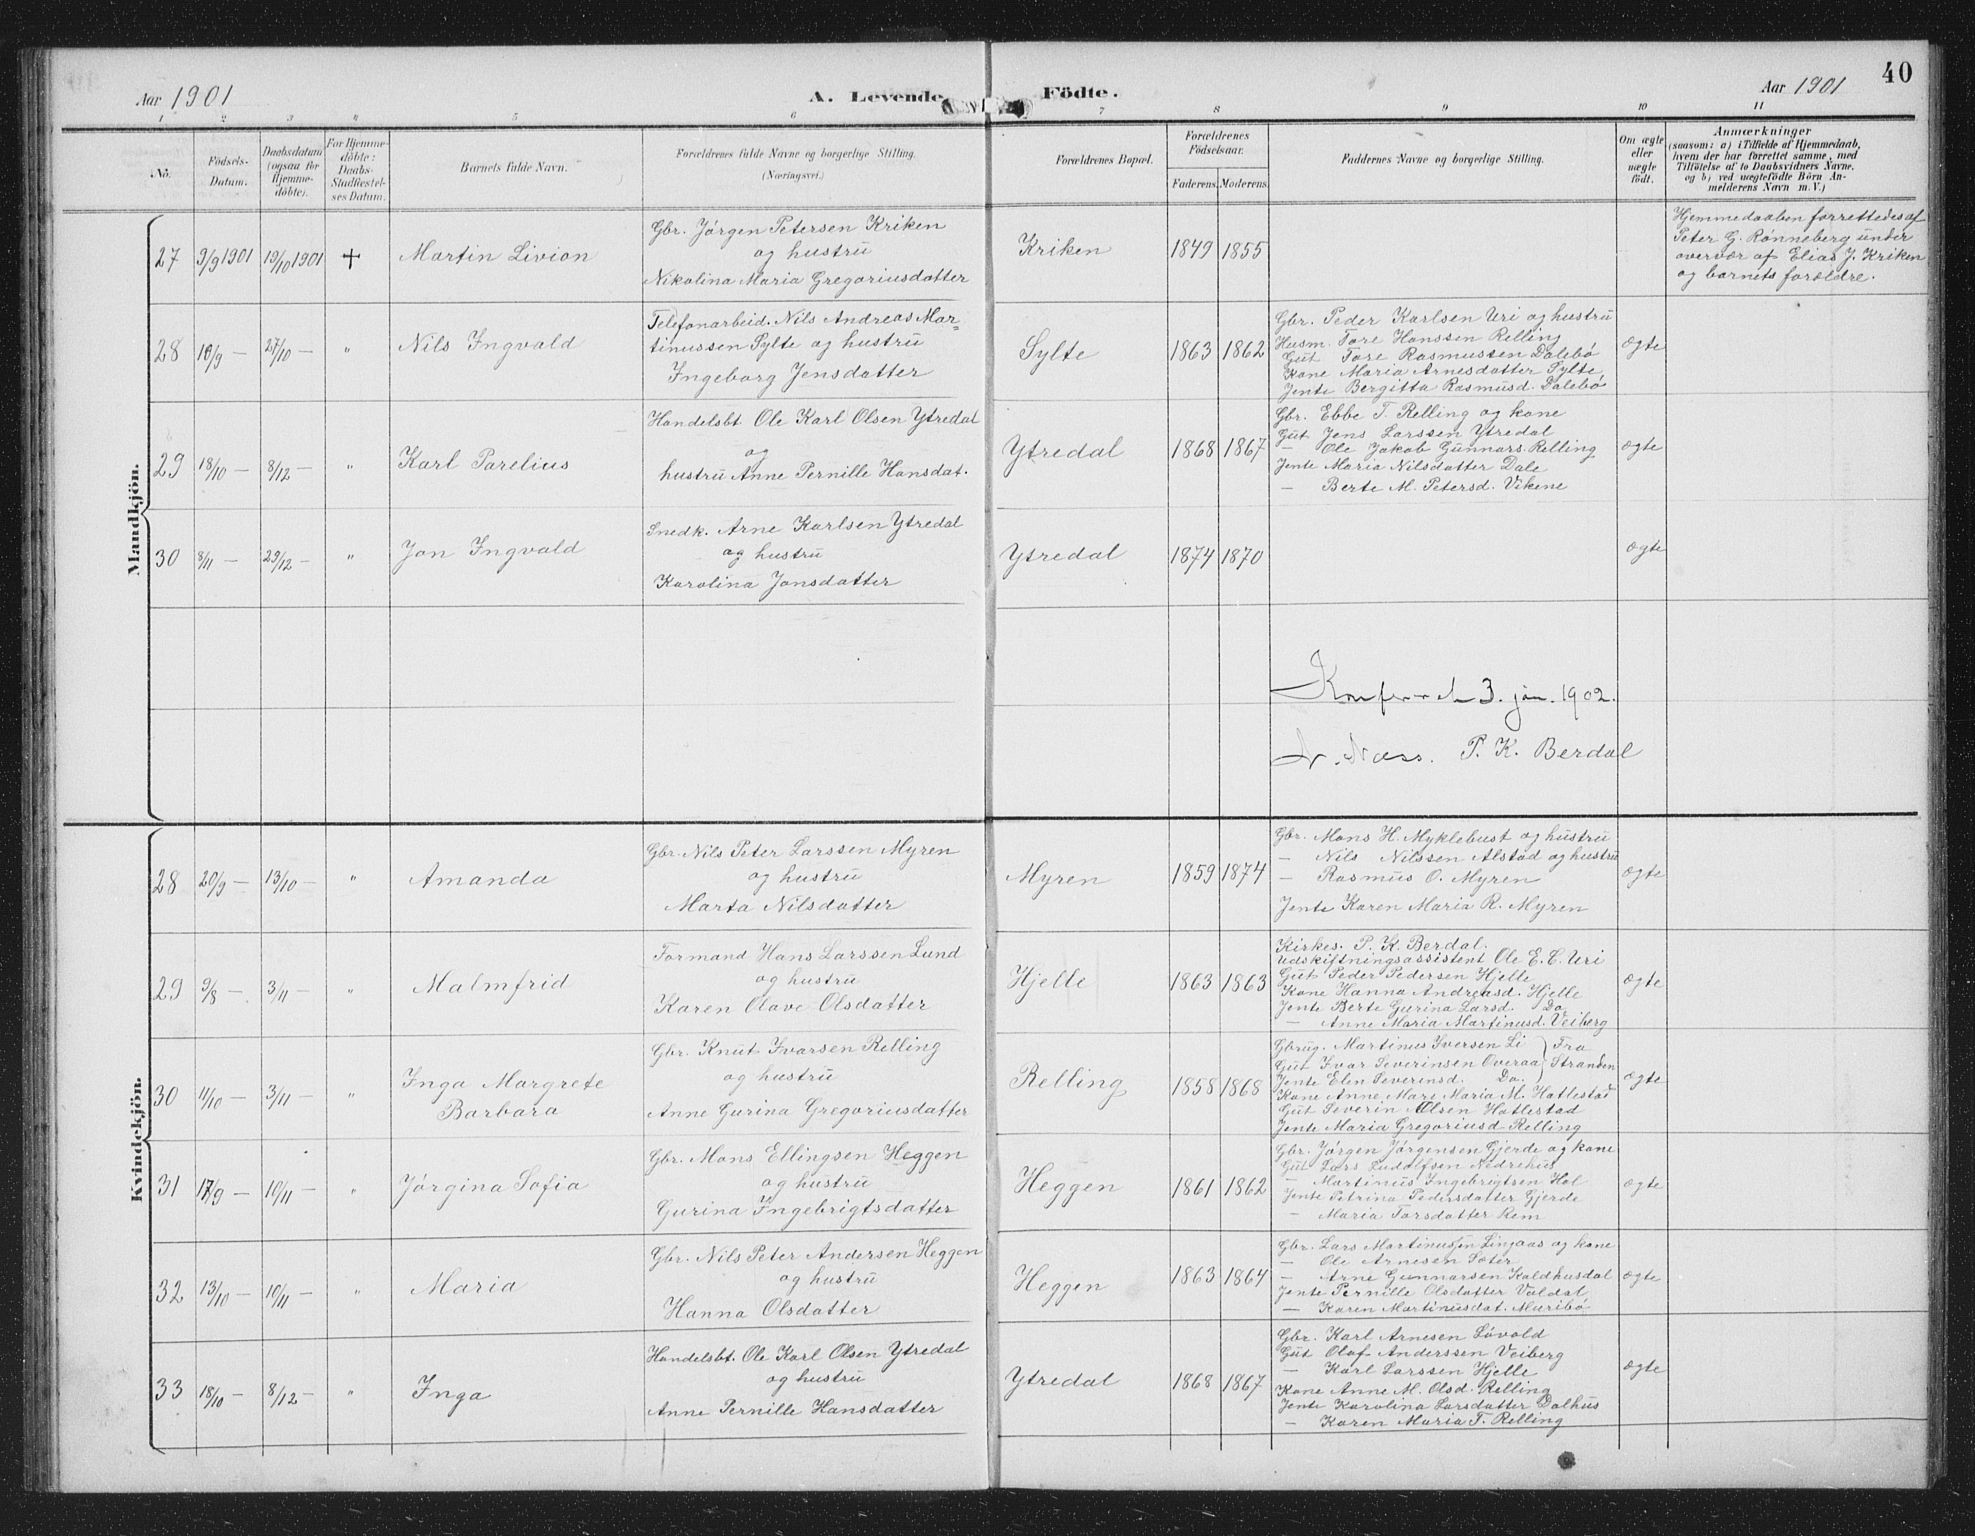 Aar 1901
A. Levende
Födte.
Aar 1901
40
1 2 3 4 5 6 7 8 9 10 11
No.
Födsels-
Datum.
Daabsdatum
(ogsaa for
Hjemme-
döbte).
For Hjemme-
döbte:
Daabs-
Stadfæstel-
ses Datum.
Barnets fulde Navn.
Forældrenes fulde Navne og borgerlige Stilling.
(Næringsvei.)
Forældrenes Bopæl.
Forældrenes
Födselsaar.
Faderens. Moderens.
Faddernes Navne og borgerlige Stilling.
Om ægte
eller
uægte
födt.
Anmærkninger
(saasom: a) i Tilfælde af Hjemmedaab,
hvem der har forrettet samme, med
Tilföielse af to Daabsvidners Navne,
og b) ved uægtefödte Börn An-
melderens Navn m. V.)
Mandkjön.
27 9/9 1901 19/10 1901 + Martin Livion
Gbr. Jørgen Petersen Kriken
og hustru
Nikolina Maria Gregoriusdatter
Kriken 1849 1855
Hjemmedaaben forrettedes af
Peter G. Rønneberg under
overvær af Elias J. Kriken
og barnets forældre.
28 16/9 — 27/10 — " Nils Ingvald
Telefonarbeid. Nils Andreas Mar-
tinussen Sylte og hustru
Ingeborg Jensdatter
Sylte 1863 1862
Gbr. Peder Karlsen Uri og hustru
Husm. Tore Hanssen Relling
Gut Tore Rasmussen Dalebø
Kone Maria Arnesdatter Sylte
Jente Bergitta Rasmusd. Dalebø
ægte
29 18/10 — 8/12 — " Karl Parelius
Handelsbt. Ole Karl Olsen Ytredal
og
hustru Anne Pernille Hansdat.
Ytredal 1868 1867
Gbr. Ebbe T. Relling og kone
Gut Jens Larssen Ytredal
— Ole Jakob Gunnars. Relling
Jente Maria Nilsdatter Dale
— Berte M. Petersd. Vikene
ægte
30 8/11 — 29/12 — " Jon Ingvald
Snedk. Arne Karlsen Ytredal
og hustru
Karolina Jonsdatter
Ytredal 1874 1870
ægte
3. jan. 1902.
Næss. P. K. Berdal
Kvindekjön.
28 20/9 — 13/10 — " Amanda
Gbr. Nils Peter Larssen Myren
og hustru
Marta Nilsdatter
Myren 1859 1874
Gbr. Mons H. Myklebust og hustru
— Nils Nilssen Alstad og hustru
— Rasmus O. Myren
Jente Karen Maria R. Myren
ægte
29 9/8 — 3/11 — " Malmfrid
Formand Hans Larssen Lund
og hustru
Karen Olave Olsdatter
Hjelle 1863 1863
Kirkes. P. K. Berdal.
Udskiftningsassistent Ole E. C. Uri
Gut Peder Pedersen Hjelle
Kone Hanna Andreasd. Hjelle
Jente Berte Gurina Larsd. Do
— Anne Maria Martinusd. Veiberg
ægte
30 11/10 — 3/11 — " Inga Margrete
Barbara
Gbr. Knut Ivarsen Relling
og hustru
Anne Gurina Gregoriusdatter
Relling 1858 1868
Gbrug. Martinus Iversen Li } Fra
Gut Ivar Severinsen Overaa } Stranden
Jente Elen Severensd. Do. }
Kone Anne Mare Maria M. Hatlestad
Gut Severin Olsen Hatlestad
Jente Maria Gregoriusd Relling
ægte
31 17/9 — 10/11 — " Jørgina Sofia
Gbr. Mons Ellingsen Heggen
og hustru
Gurina Ingebrigtsdatter
Heggen 1861 1862
Gbr. Jørgen Jørgensen Gjerde og kone
Gut Lars Ludolfsen Nedrehus
— Martinus Ingebrigtsen Hol
Jente Petrina Pedersdatter Gjerde
— Maria Torsdatter Rem
ægte
32 13/10 — 10/11 — " Maria
Gbr. Nils Peter Andersen Heggen
og hustru
Hanna Olsdatter
Heggen 1863 1864
Gbr. Lars Martinussen Lingaas og kone
— Ole Arnesen Sæter
— Arne Gunnarsen Kaldhusdal
Jente Pernille Olsdatter Valdal
— Karen Martinusdat. Muribø
ægte
33 18/10 — 8/12 — " Inga
Handelsbt. Ole Karl Olsen Ytredal
og hustru
Anne Pernille Hansdatter
Ytredal 1868 1867
Gbr. Karl Arnesen Løvold
Gut Olaf Anderssen Veiberg
— Karl Larssen Hjelle
Kone Anne M. Olsd. Relling
Jente Karolina Larsdatter Dalhus
— Karen Maria T. Relling
ægte